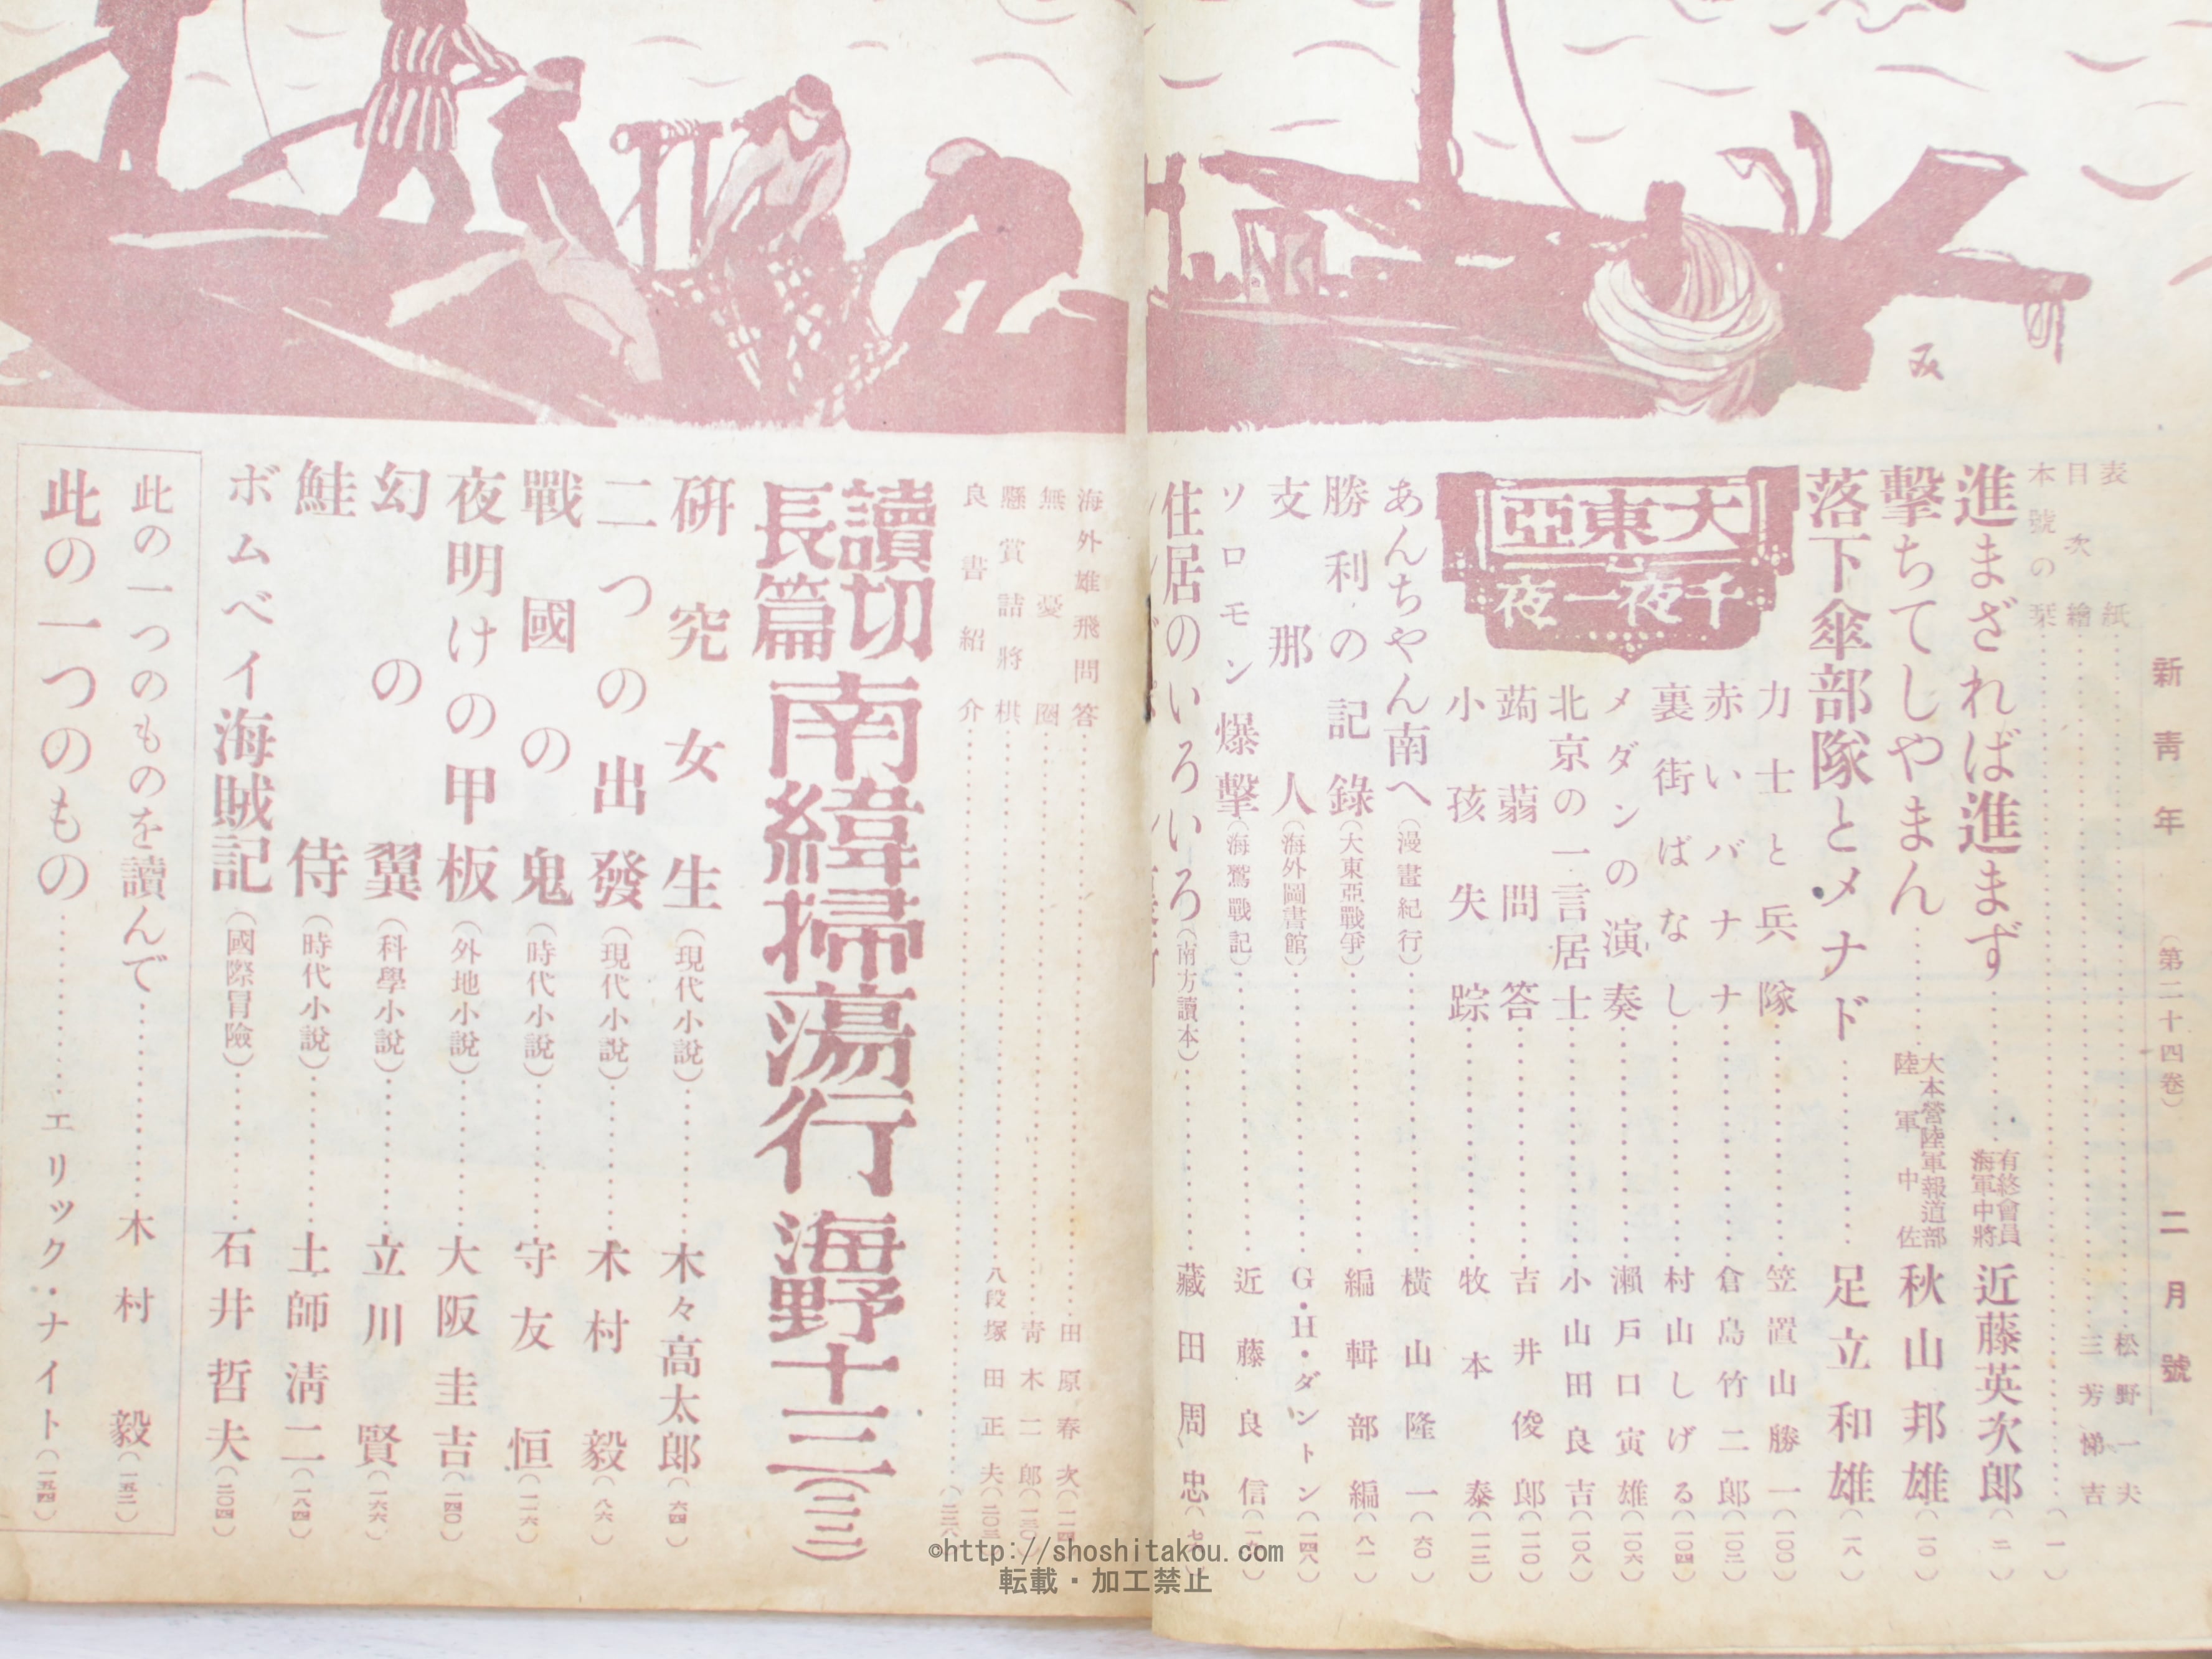 新青年 (第二十四卷) 二月號
表紙……松野一夫
目次繪……三芳悌吉
本號の栞……(一)
進まざれば進まず……有終會員 海軍中將 近藤英次郎(二)
擊ちてしやまん……大本營陸軍報道部 陸軍中佐 秋山邦雄(一〇)
落下傘部隊とメナド……足立和雄(一八)
大東亞
千夜一夜
力士と兵隊……笠置山勝一(一〇〇)
赤いバナナ……倉島竹二郎(一〇二)
裏街ばなし……村山しげる(一〇四)
メダンの演奏……瀨戶口寅雄(一〇六)
北京の一言居士……小山田良吉(一〇八)
蒟蒻問答……吉井俊郎(一一〇)
小孩失踪……牧本泰(一一二)
あんちやん南へ(漫畫紀行)……橫山隆一(六〇)
勝利の記錄(大東亞戰爭)……編輯部編(八一)
支那人(海外圖書館)……G・H・ダントン(一四八)
ソロモン爆擊(海鷲戰記)……近藤良信
住居のいろいろ(南方讀本)……藏田周忠
海外雄飛問答……田原春次
無憂圈……靑木二郎(一三〇)
懸賞詰將棋……八段塚田正夫(二〇三)
良書紹介……
讀切長篇 南緯掃蕩行 海野十三(二二)
硏究女生(現代小說)……木々高太郎(六四)
二つの出發(現代小說)……木村毅(八六)
戰國の鬼(時代小說)……守友恒(一一六)
夜明けの甲板(外地小說)……大阪圭吉(一四〇)
幻の翼(科學小說)……立川賢(一六六)
鮭侍(時代小說)……土師淸二(一八四)
ボムベイ海賊記(國際冒險)……石井哲夫(二〇四)
此の一つのものを讀んで……木村毅(一五二)
此の一つのもの……エリック・ナイト(一五四)
©http://shoshitakou.com
転載・加工禁止